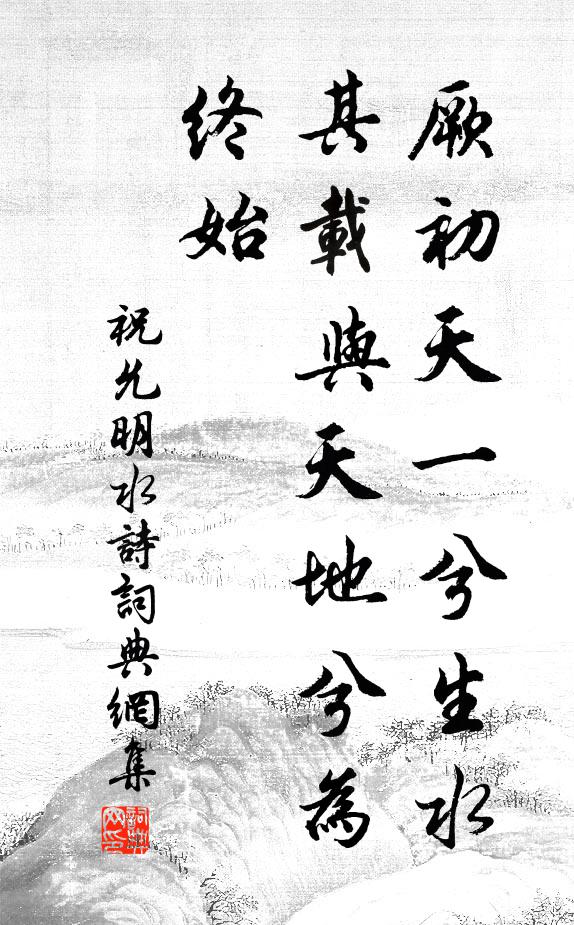 厥初天一兮生水
其載與天地兮為
終始
祝允明水詩詞典網集
詞典網印